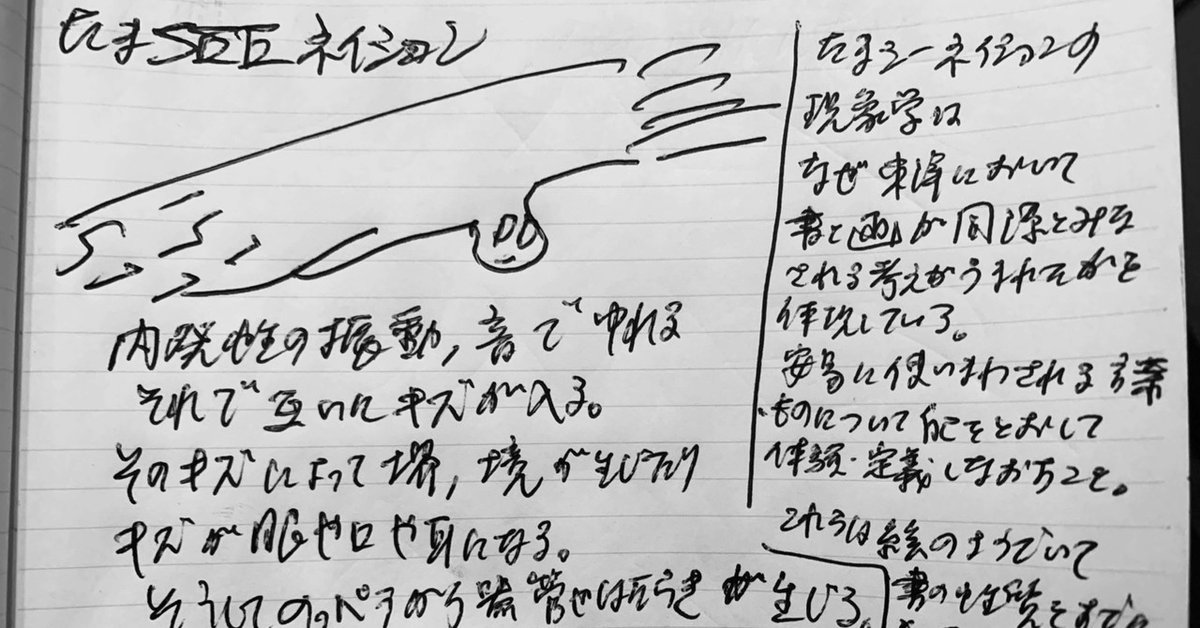 たま ネイション
内発性の振動,音でゆれる
それで互いにキズが入る。
そのキズによって堺,境が生じたり
キズが眼や口や耳になる。
そうしてのっぺらから器官やはたらきが生じる。
たましーネイションの
現象学は
なぜ東洋において
書と画が同源とみな
される考えがうまれたかを
体現している。
安易に使いまわされる言葉
ものについて自己をとおして
体験・定義しなおすこと。
これらは絵のようでいて
書の性質をすでに